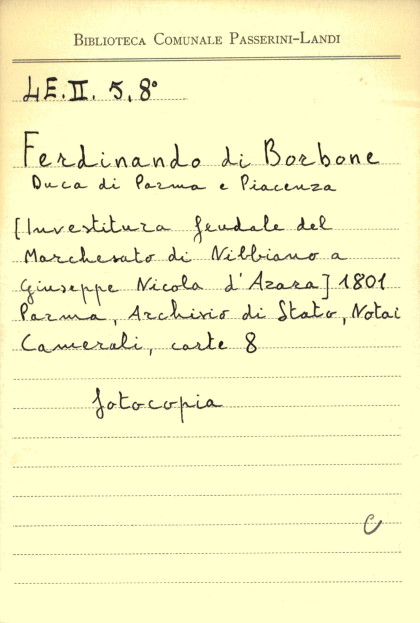 BIBLIOTECA COMUNALE PASSERINI-LANDI
LE.II. 5, 8°
Ferdinando di Borbone
Duca di Parma e Piacenza
[Investitura feudale del
Marchesato di Nibbiano a
Giuseppe Nicola d'Azara] 1801
Parma, Archivio di Stato, Notai
Camerali, carte 8
fotocopia
C